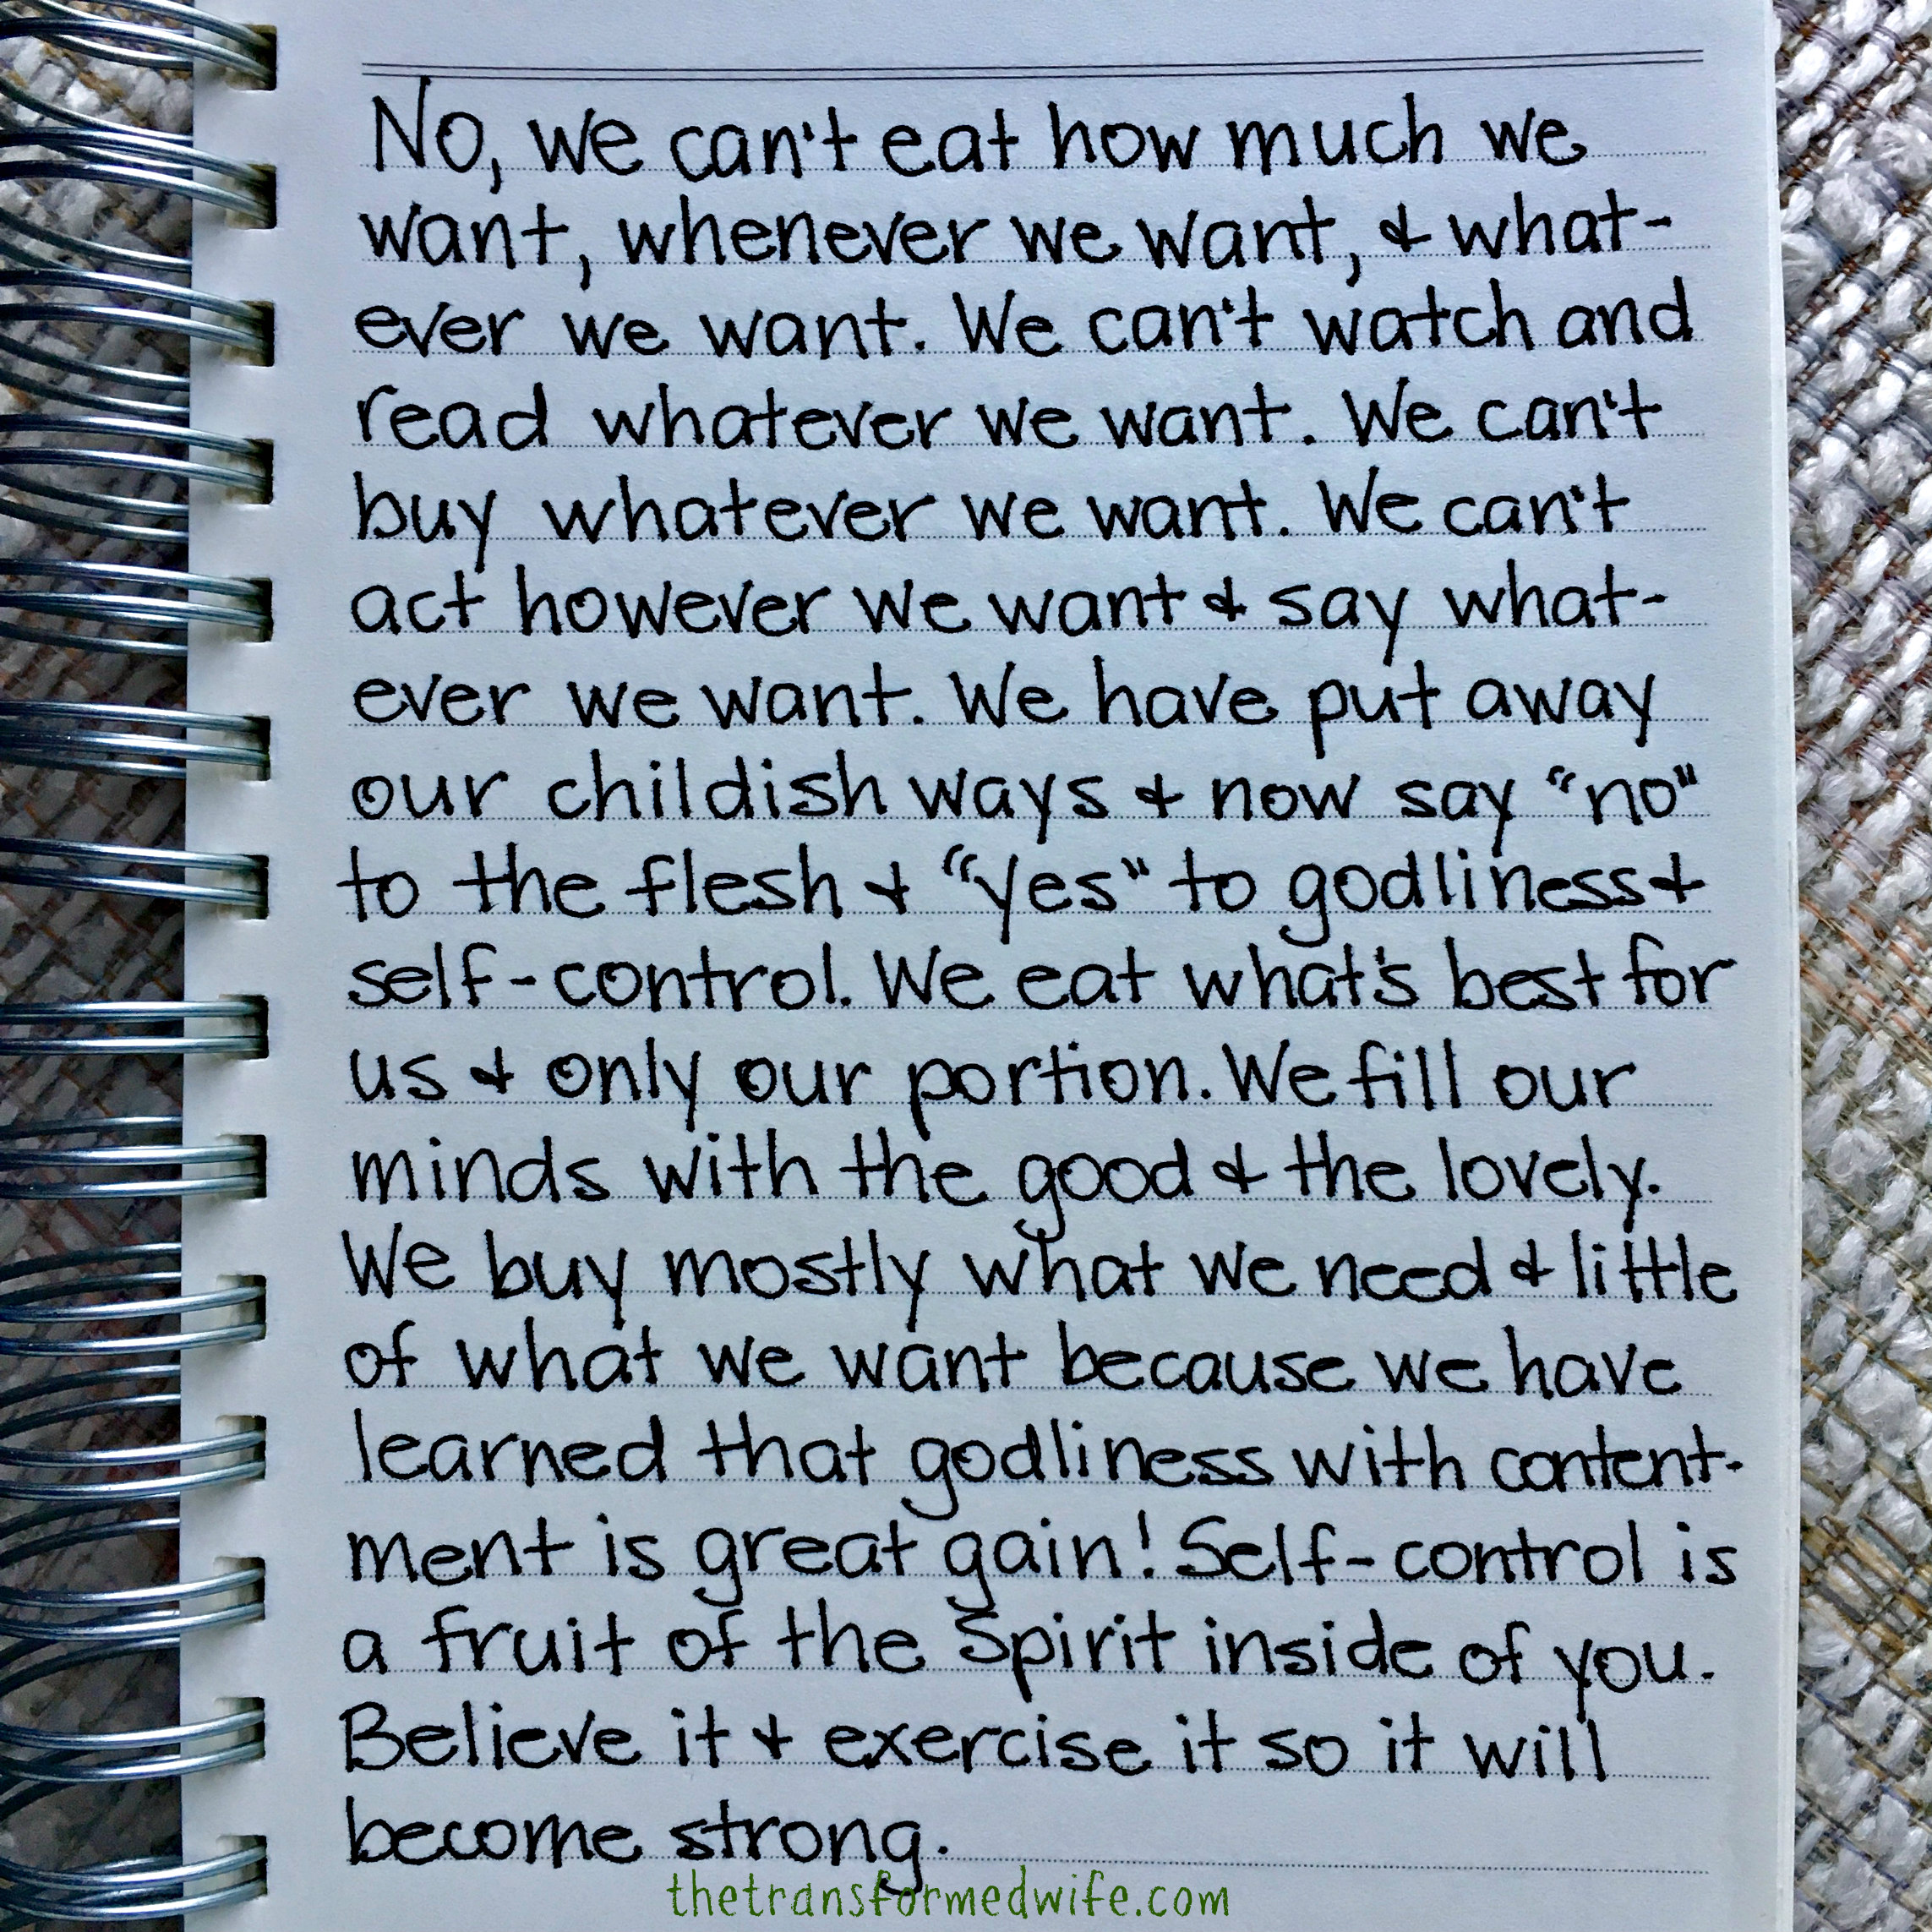 No, we can't eat how much we
want, whenever we want, & what-
ever we want. We can't watch and
read whatever we want. We can't
buy whatever we want. We can't
act however we want & say what-
ever we want. We have put away
our childish ways & now say "no"
to the flesh & "yes" to godliness &
self-control. We eat what's best for
us & only our portion. We fill our
minds with the good & the lovely.
We buy mostly what we need & little
of what we want because we have
learned that godliness with content-
ment is great gain! Self-control is
a fruit of the Spirit inside of you.
Believe it & exercise it so it will
become strong.
thetransformedwife.com